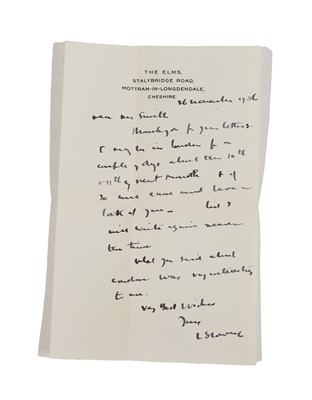 THE ELMS,
STALYBRIDGE ROAD,
MOTTRAM-IN-LONGDENDALE,
CHESHIRE
26 November 1956
Dear Mr Smith
Thank you for your letters.
I may be in London for a
couple of days about the 10th
of next month & if
so will come and have a
look at you — but I
will write again nearer
the time.
What you said about
London was very interesting
to me.
Very Best Wishes
Yours
L S Lowry